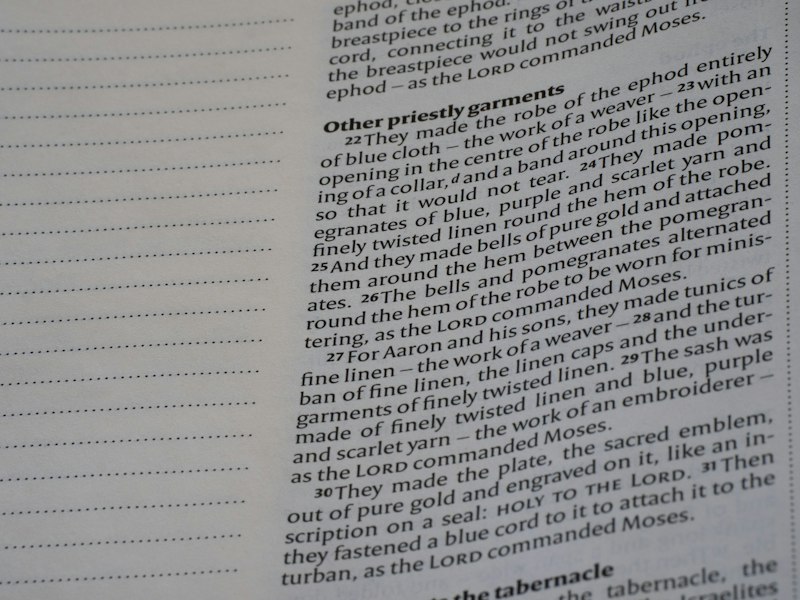 ephod,
band of the ephod.
breastpiece to the rings of
cord, connecting it to the waist
the breastpiece would not swing out
ephod – as the LORD commanded Moses.
Other priestly garments
22 They made the robe of the ephod entirely
of blue cloth – the work of a weaver – 23 with an
opening in the centre of the robe like the open-
ing of a collar, d and a band around this opening,
so that it would not tear. 24 They made pom-
egranates of blue, purple and scarlet yarn and
finely twisted linen round the hem of the robe.
25 And they made bells of pure gold and attached
them around the hem between the pomegran-
ates. 26 The bells and pomegranates alternated
round the hem of the robe to be worn for minis-
tering, as the LORD commanded Moses.
27 For Aaron and his sons, they made tunics of
fine linen – the work of a weaver – 28 and the tur-
ban of fine linen, the linen caps and the under-
garments of finely twisted linen. 29 The sash was
made of finely twisted linen and blue, purple
and scarlet yarn – the work of an embroiderer –
as the LORD commanded Moses.
30 They made the plate, the sacred emblem,
out of pure gold and engraved on it, like an in-
scription on a seal: HOLY TO THE LORD. 31 Then
they fastened a blue cord to it to attach it to the
turban, as the LORD commanded Moses.
the tabernacle
the tabernacle, the
Israelites